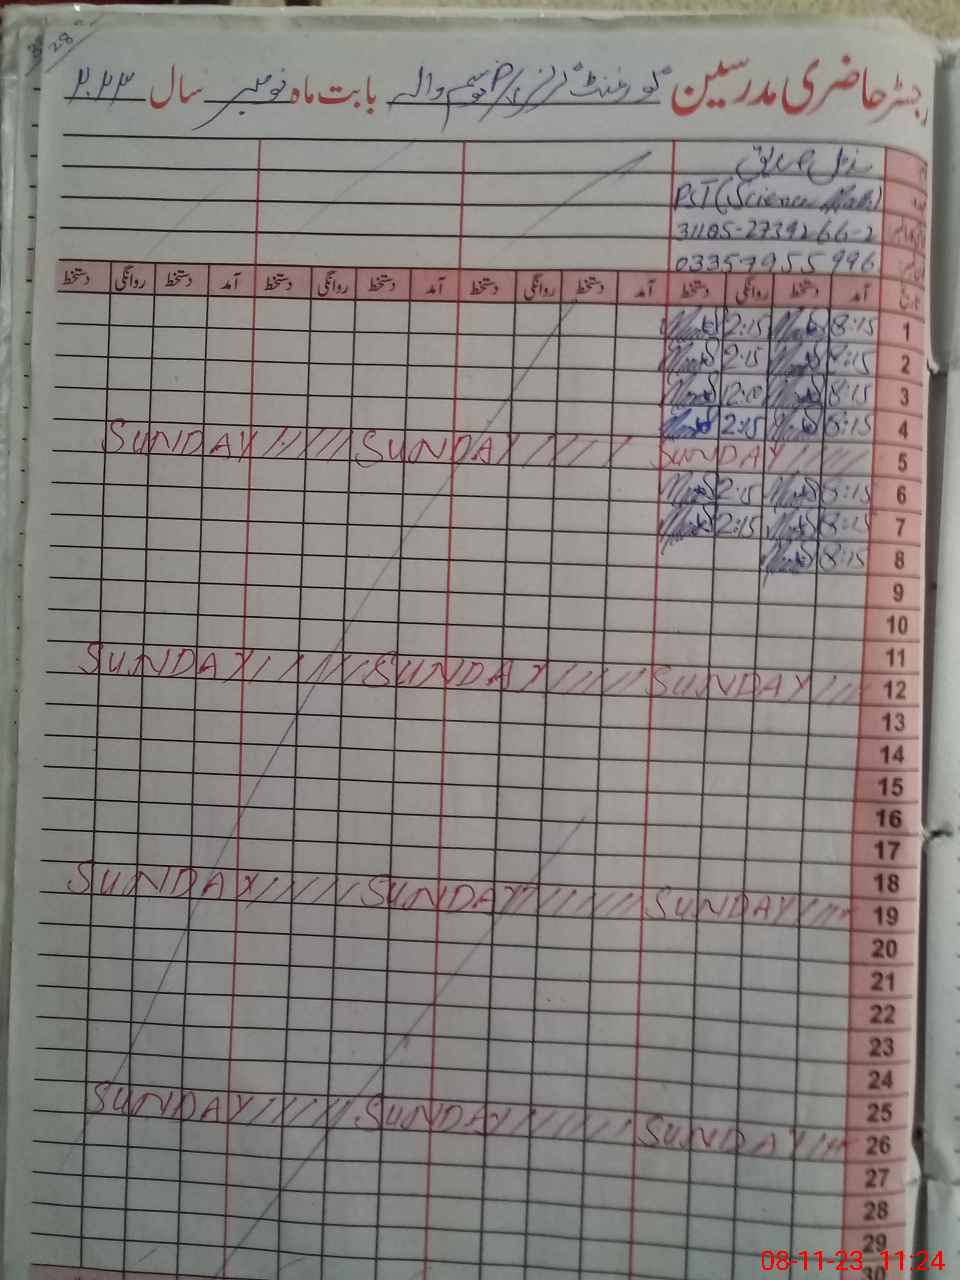 رجسٹر حاضری مدرسین گورنمنٹ گرلز بابت ماہ نومبر سال ۲۰۲۳
PST (Science Math)
31105-2739266-2
03357955996
تاریخ آمد دستخط روانگی دستخط آمد دستخط روانگی دستخط آمد دستخط روانگی دستخط آمد دستخط روانگی دستخط
1 8:15 2:15
2 8:15 2:15
3 8:15 12:00
4 8:15 2:15
5 SUNDAY SUNDAY SUNDAY
6 8:15 2:15
7 8:15 2:15
8 8:15
9
10
11
12 SUNDAY SUNDAY SUNDAY
13
14
15
16
17
18
19 SUNDAY SUNDAY SUNDAY
20
21
22
23
24
25
26 SUNDAY SUNDAY SUNDAY
27
28
29
30
08-11-23 11:24